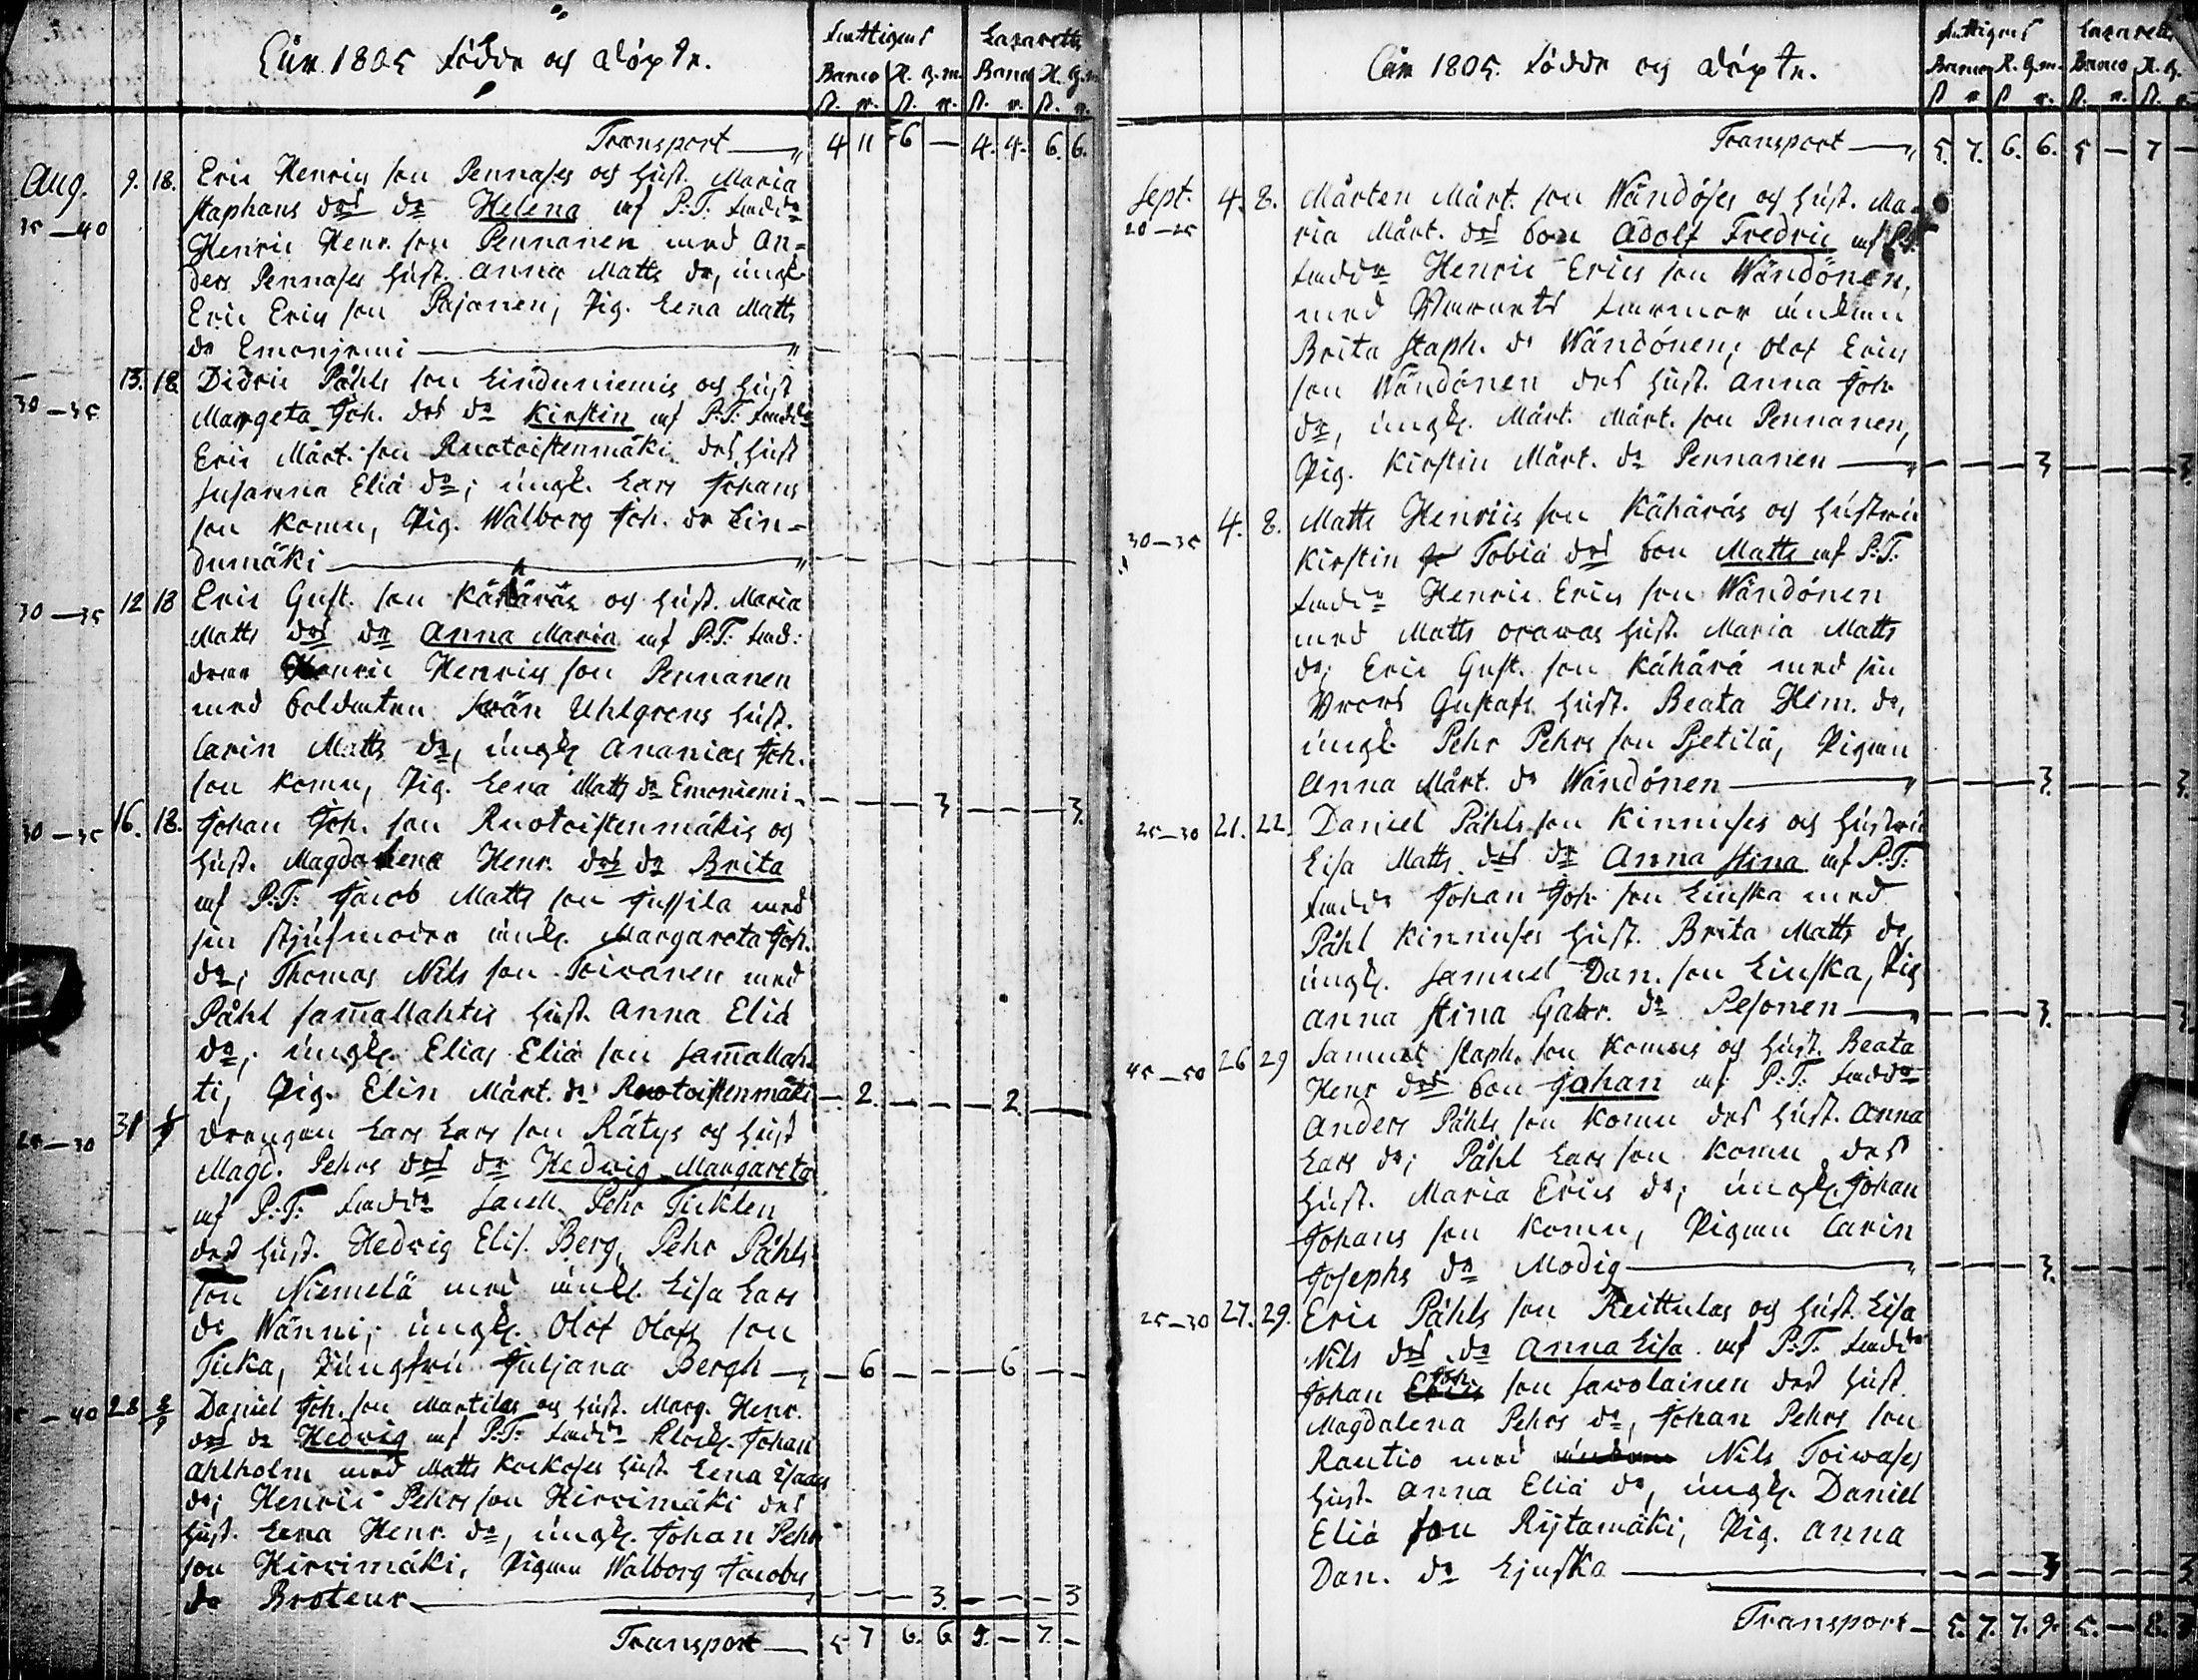 Åår 1805 Födde och döpte.
Fattigens Lazaretts
Banco R. G.m. Banco R. G.m.
ſk. r. ſk. r. ſk. r. ſk. r.
Transport — 4 11 6 — 4. 4. 6. 6.
Aug. 9. 18. Eric Henrics son Pennases och hust. Maria
35—40 Staphans dr dr Helena af P:T: fadd:
Henric Henr. son Pennanen med An-
ders Pennases hust. Anna Matts dr, ungk.
Eric Erics son Pajanen, Pig. Lena Matts
dr Emonjemi —
13. 18 Didric Påhls son Linduniemis och hust
30—35 Margeta Joh. dr dr Kirstin af P:T: fadd:
Eric Mårt. son Ruotoistenmäki des hust
Susanna Eliä dr; ungk. Lars Johans
son Komu, Pig. Walborg Joh. dr Lin-
dumäki —
30—35 12 18 Eric Gust. son Kähäräs och hust. Maria
Matts dr dr Anna Maria af P:T: fad:
drar Henric Henrics son Pennanen
med Soldaten Swän Uhlgrens hust.
Carin Matts dr, ungk. Ananias Joh.
son Komu, Pig. Lena Matts dr Emoniemi — 3 — 3.
30—35 16. 18. Johan Joh. son Ruotoistenmäkis och
hust. Magdalena Henr. dr dr Brita
af P:T: Jacob Matts son Jussila med
sin stjufmoder änk. Margareta Joh.
dr; Thomas Nils son Toivanen med
Påhl Sam̄allahtis hust. Anna Eliä
dr; ungk. Elias Eliä son Sam̄allah-
ti, Pig. Elin Mårt. dr Ruotoistenmäki — 2. — 2. —
25—30 31 Drengen Lars Lars son Rätys och hust
Magd. Pehrs dr dr Hedwig Margareta
af P:T: fadd: Pehr Ticklen
des hust. Hedvig Elis. Berg, Pehr Påhls
son Niemelä med änk. Lisa Lars
dr Wänni; ungk. Olof Olofs son
Tuka, Jungfru Juljana Bergh — 6 — 6 —
—40 28 8/9 Daniel Joh. son Martilas och hust. Marg. Henr.
dr dr Hedvig af P:T: fadd: Klock. Johan
Ahlholm med Matts Kockoses hust Lena Isacs
dr; Henric Pehrs son Hirvimäki des
hust. Lena Henr. dr, ungk. Johan Pehr
son Hirvimäki, Pigan Walborg Jacobs
dr Broteur — 3. — 3
Transport — 5 7 6. 6 5. — 7. —
Åår 1805. Födde och döpte.
Fattigens Lazaretts
Banco R. G.m. Banco R. G.
ſk r ſk r. ſk. r. ſk. r.
Transport — 5. 7. 6. 6. 5 — 7 —
Sept. 4. 8. Mårten Mårt. son Wändöses och hust. Ma-
20—25 ria Mårt. dr son Adolf Fredric af P:T:
fadd: Henric Erics son Wändönen,
med farmor änkan
Brita Staph. dr Wändönen; Olof Erics
son Wändönen des hust. Anna Joh
dr, ungk. Mårt. Mårt. son Pennanen,
Pig. Kirstin Mårt. dr Pennanen — 3 — 3.
30—35 4. 8. Matts Henrics son Kähäräs och hustru
Kirstin Tobiä dr son Matts af P:T:
fadd: Henric Erics son Wändönen
med Matts Orawas hust. Maria Matts
dr; Eric Gust. son Kähärä med sin
Brors Gustafs hust. Beata Hem. dr,
ungk. Pehr Pehrs son Pjetilä, Pigan
Anna Mårt. dr Wändönen — 3. — 3.
25—30 21. 22. Daniel Påhls son Kinnuses och hustru
Lisa Matts dr dr Anna Stina af P:T:
fadd: Johan Joh. son Liuska med
Påhl Kinnuses hust. Brita Matts dr,
ungk. Samuel Dan. son Liuska, Pig
Anna Stina Gabr. dr Pesonen — 3. — 3.
45—50 26 29 Samuel Staph. son Komus och hust. Beata
Henr dr son Johan af P:T: fadd:
Anders Påhls son Komu des hust. Anna
Lars dr; Påhl Lars son Komu des
hust. Maria Erics dr; ungk. Johan
Johans son Komu, Pigan Carin
Josephs dr Modig — 3. —
25—30 27. 29. Eric Påhls son Reittulas och hust. Lisa
Nils dr dr Anna Lisa af P:T. fadd:
Johan Joh. son Sawolainen des hust
Magdalena Pehrs dr, Johan Pehrs son
Rautio med Nils Toiwases
hust. Anna Eliä dr, ungk. Daniel
Eliä son Rytämäki, Pig. Anna
Dan. dr Ljuska — 3 — 3
Transport — 5. 7. 7. 9. 5. — 8. 3